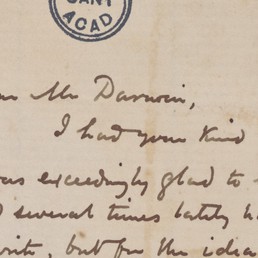 CANT
ACAD
Mr Darwin,
I had your kind
was exceedingly glad to
several times lately
write, but for the idea